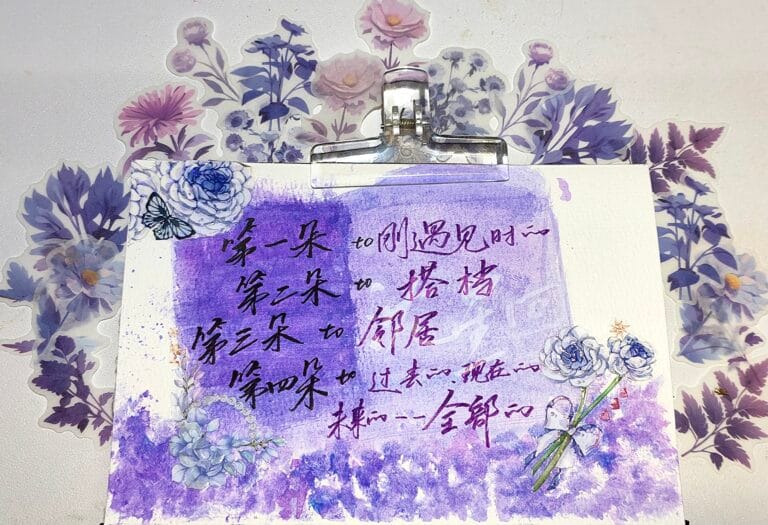 第一朵 to 刚遇见时的
第二朵 to 搭档
第三朵 to 邻居
第四朵 to 过去的、现在的
未来的--全部的